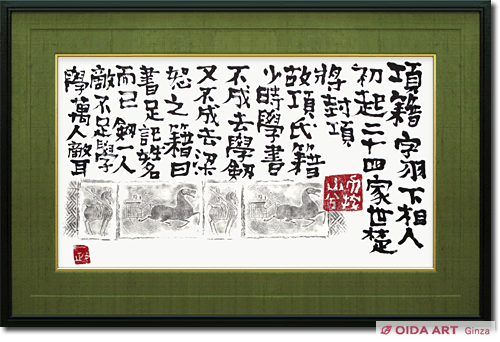 項籍字羽下相人
初起二十四家世楚
將封項
故項氏籍
少時學書
不成去學劔
又不成去梁
怒之籍曰
書足記姓名
而已劔一人
敵不足學
學萬人敵耳
OIDA ART Ginza